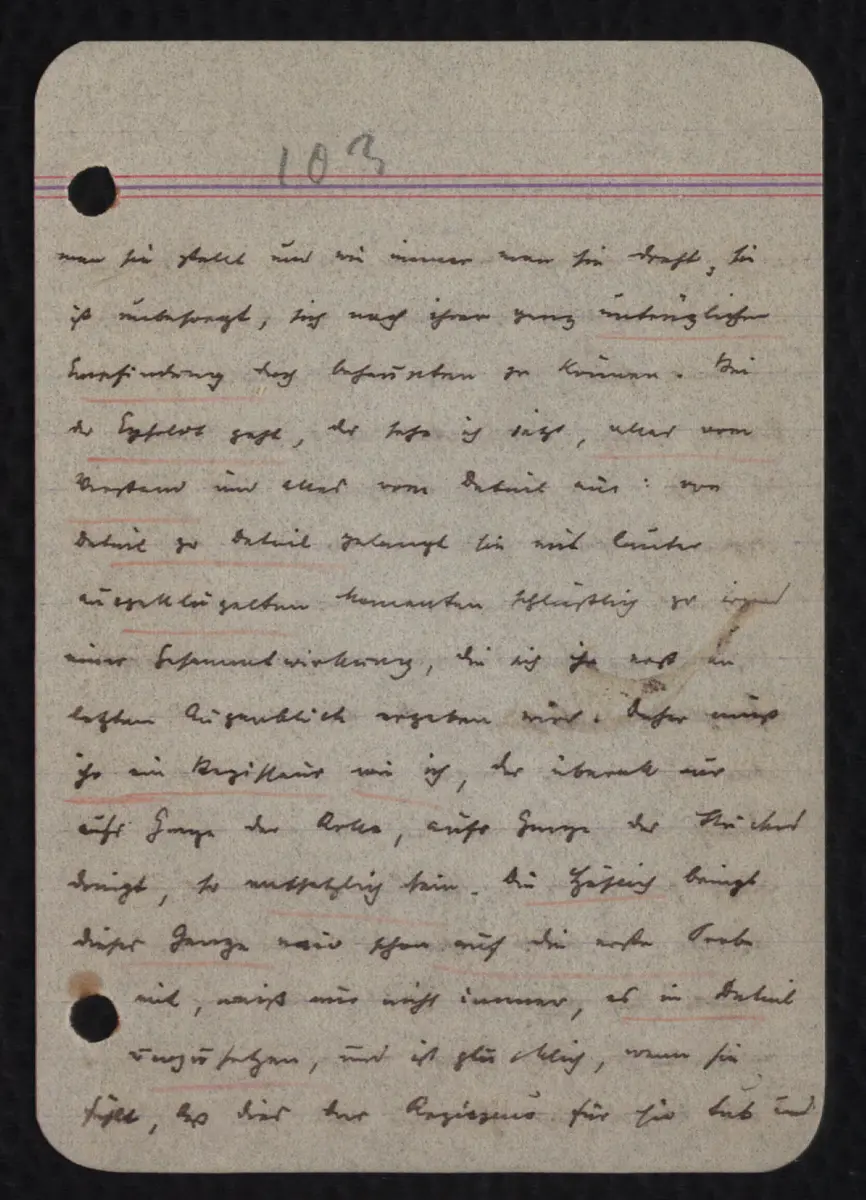 103
man sie stellt und wie immer man sie dreht, sie
ist unbesorgt, sich nach ihrer ganz untrüglichen
Empfindung doch behaupten zu können. Bei
der Eysoldt geht, das sehe ich jetzt, alles vom
Verstand und alles vom Detail aus: von
Detail zu Detail gelangt sie mit lauter
ausgeklügelten Momenten schließlich zu irgend
einer Gesammtwirkung, die sich ihr erst im
letzten Augenblick ergeben wird. Daher muß
ihr ein Regisseur wie ich, der überall nur
aufs Ganze der Rolle, aufs Ganze des Stückes
dringt, so entsetzlich sein. Die Höflich bringt
dieses Ganze naiv schon auf die erste Probe
mit, weiß nur nicht immer, es in Detail
umzusetzen, und ist glücklich, wenn sie
fühlt, daß dies der Regisseur für sie tut und